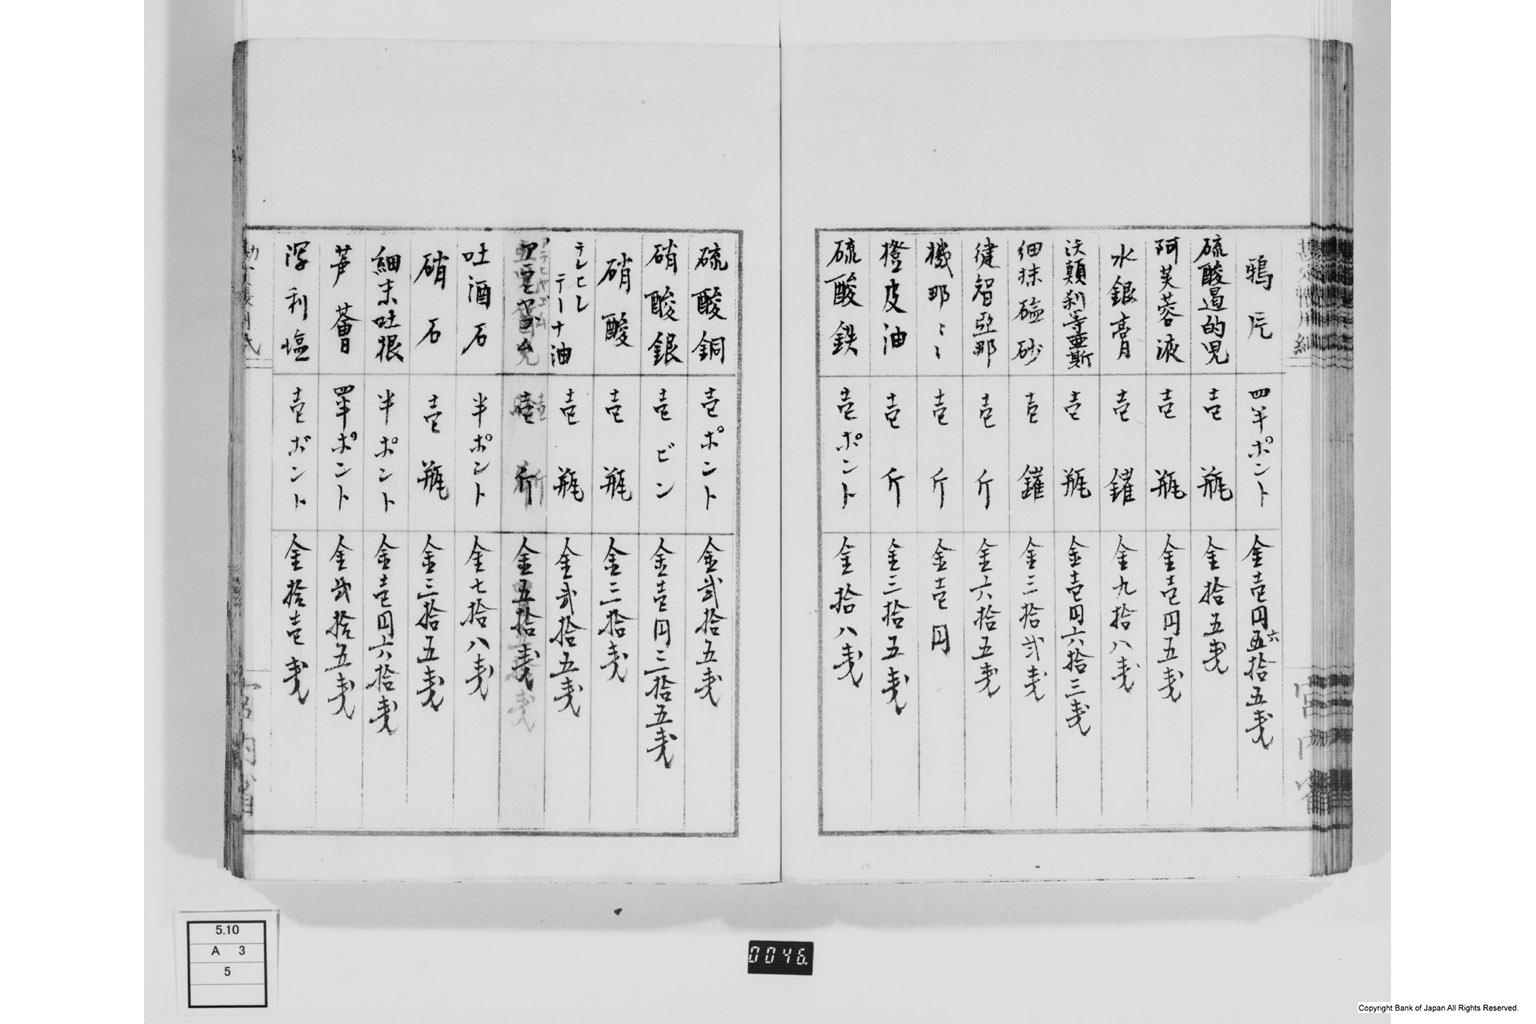 鴉片 四半ポント 金壱円五六拾五戔
硫酸曷的児 壱瓶 金拾五戔
阿芙蓉液 壱瓶 金壱円五戔
水銀膏 壱鑵 金九拾八戔
壱瓶 金壱円六拾三戔
細抹磠砂 壱鑵 金三拾弐戔
健智亞那 壱斤 金六拾五戔
機那〻 壱斤 金壱円
橙皮油 壱斤 金三拾五戔
硫酸鉄 壱ポント 金拾八戔
硫酸銅 壱ポント 金弐拾五戔
硝酸銀 壱ビン 金壱円三拾五戔
硝酸 壱瓶 金三拾戔
テレヒンテーナ油 壱瓶 金弐拾五戔
壱斤 金五拾戔
吐酒石 半ポント 金七拾八戔
硝石 壱瓶 金三拾五戔
細末吐根 半ポント 金壱円六拾戔
芦薈 四半ポント 金弐拾五戔
瀉利塩 壱ポント 金拾壱戔
宮内省
宮内省
5.10
A 3
5
0046.
Copyright Bank of Japan All Rights Reserved.